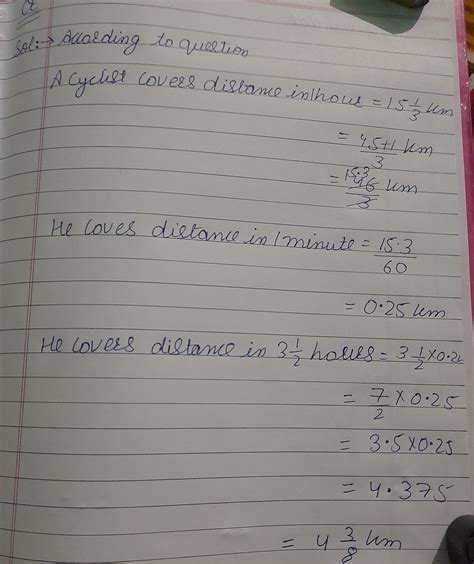 Q
Sol:→ According to question
A cyclist covers distance in 1 hour = 15 1/3 km
= 45+1/3 km
= 15.3 46/3 km
He coves distance in 1 minute = 15.3/60
= 0.25 km
He covers distance in 3 1/2 hours = 3 1/2 × 0.2
= 7/2 × 0.25
= 3.5 × 0.25
= 4.375
= 4 3/8 km